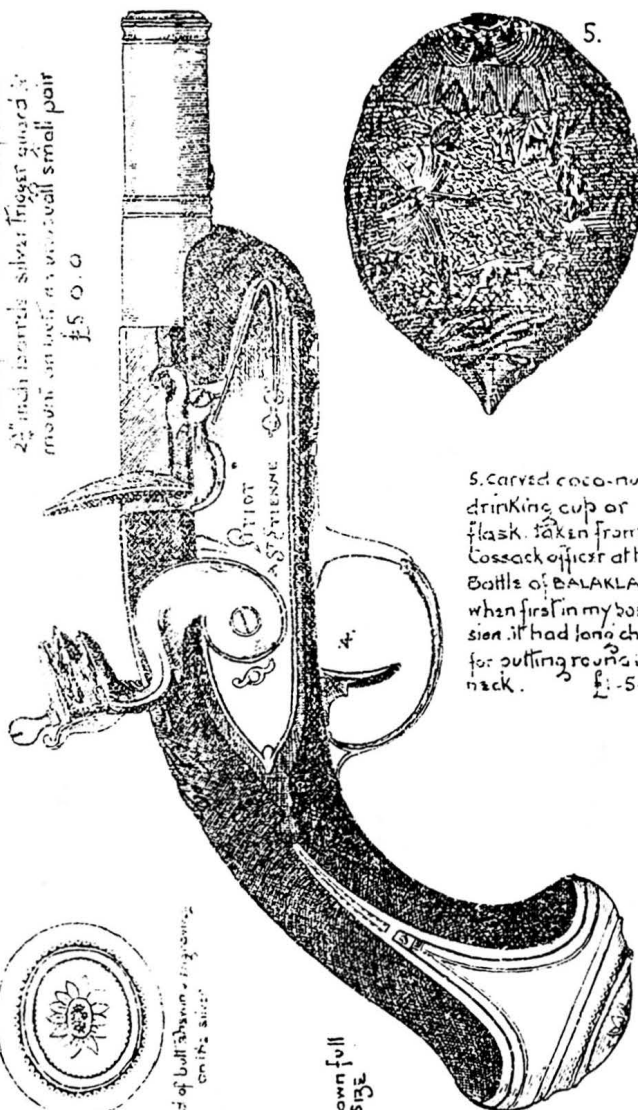 2¾" inch barrels silver trigger guard &
mount on butt an unusual small pair
£5 0.0
5.
GITIOT
A ST ETIENNE
4.
5. carved coco-nu
drinking cup or
flask. taken from
Cossack officer at
Battle of BALAKLA
when first in my pos
sion. it had long ch
for putting round
neck. £1-5
of butt showing engraving
on the silver
own full
SIZE